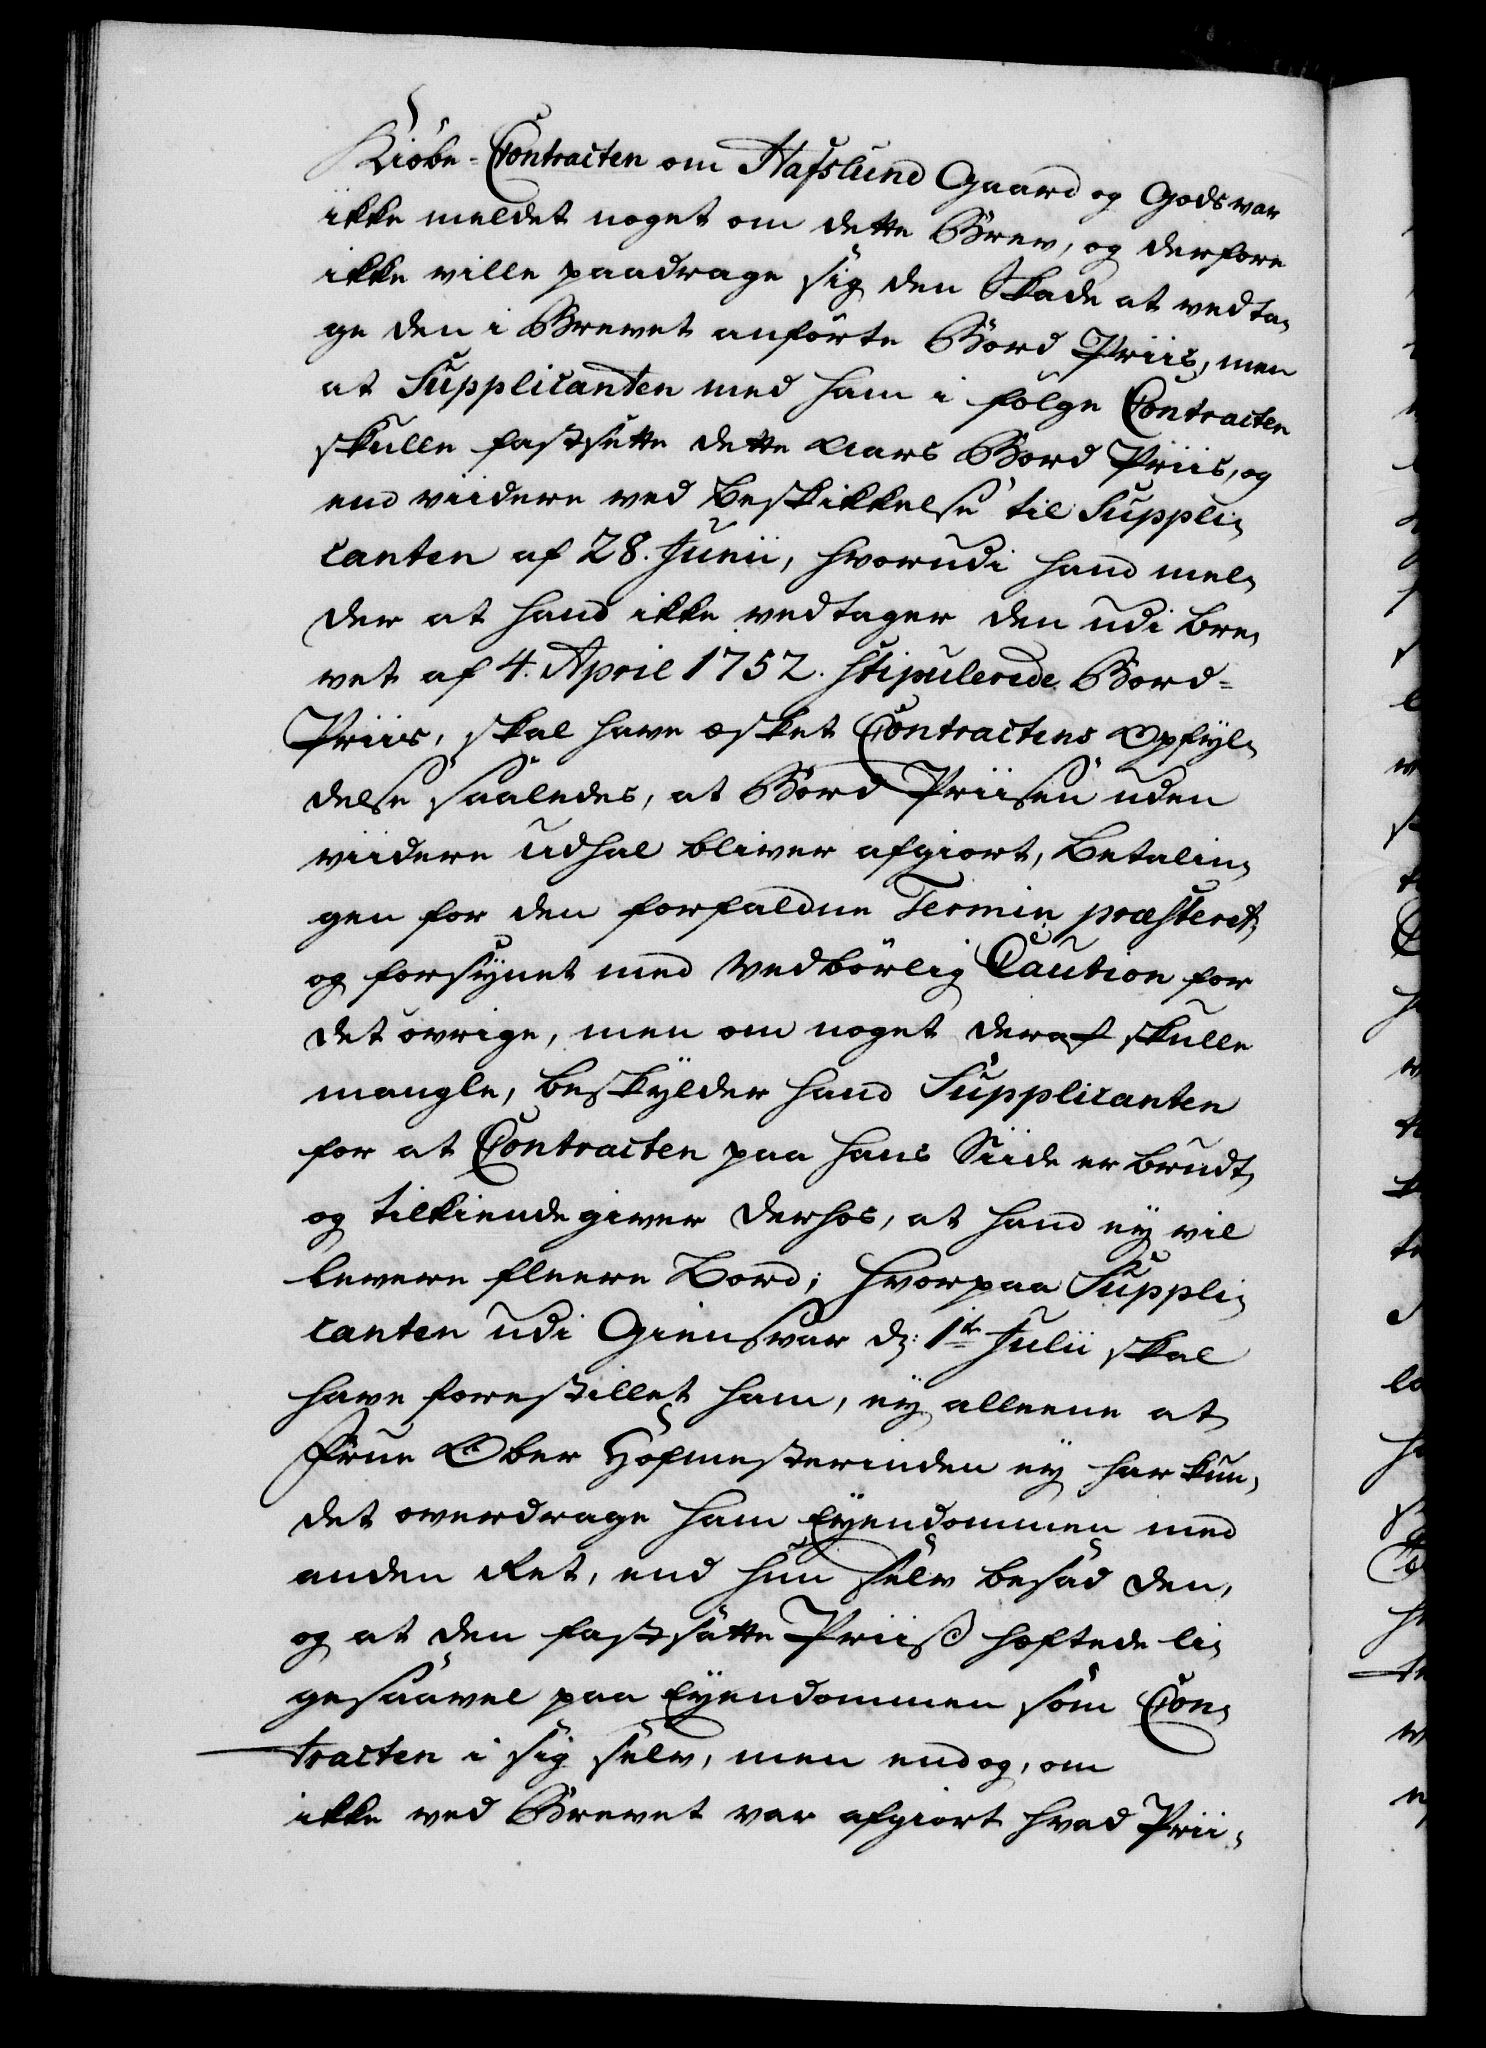 Kiöbe-Contracten om Hafslund Gaard og Gods var
ikke meldet noget om dette Brev, og derfore
ikke ville paadrage sig den Skade at vedta-
ge den i Brevet anförte Bord Priis, men
at Supplicanten med ham i fölge Contracten
skulle fastsætte dette Aars Bord Priis, og
end viidere ved Beskikkelse til Suppli-
canten af 28. Junii, hvorudi hand mel-
der at hand ikke vedtager den udi Bre-
vet af 4. April 1752. stipulerede Bord-
Priis, skal have æsket Contractens Opfyl-
delse saaledes, at Bord Priisen uden
viidere Udhal bliver afgiort, Betalin-
gen for den forfaldne Termin præsteret,
og forsynet med vedbörlig Caution for
det övrige, men om noget deraf skulle
mangle, beskylder hand Supplicanten
for at Contracten paa hans Siide er brudt,
og tilkiende giver derhos, at hand ey vil
levere fleere Bord; hvorpaa Suppli-
canten udi Giensvar d: 1te Julii skal
have forestillet ham, ey alleene at
Frue Ober Hofmesterinden ey har kun-
det overdrage ham Eyendommen med
anden Ret, end hun selv besad den,
og at den fastsatte Priis hæftede li-
gesaavel paa Eyendommen som Con-
tracten i sig selv, men endog, om
ikke ved Brevet var afgiort hvad Prii-